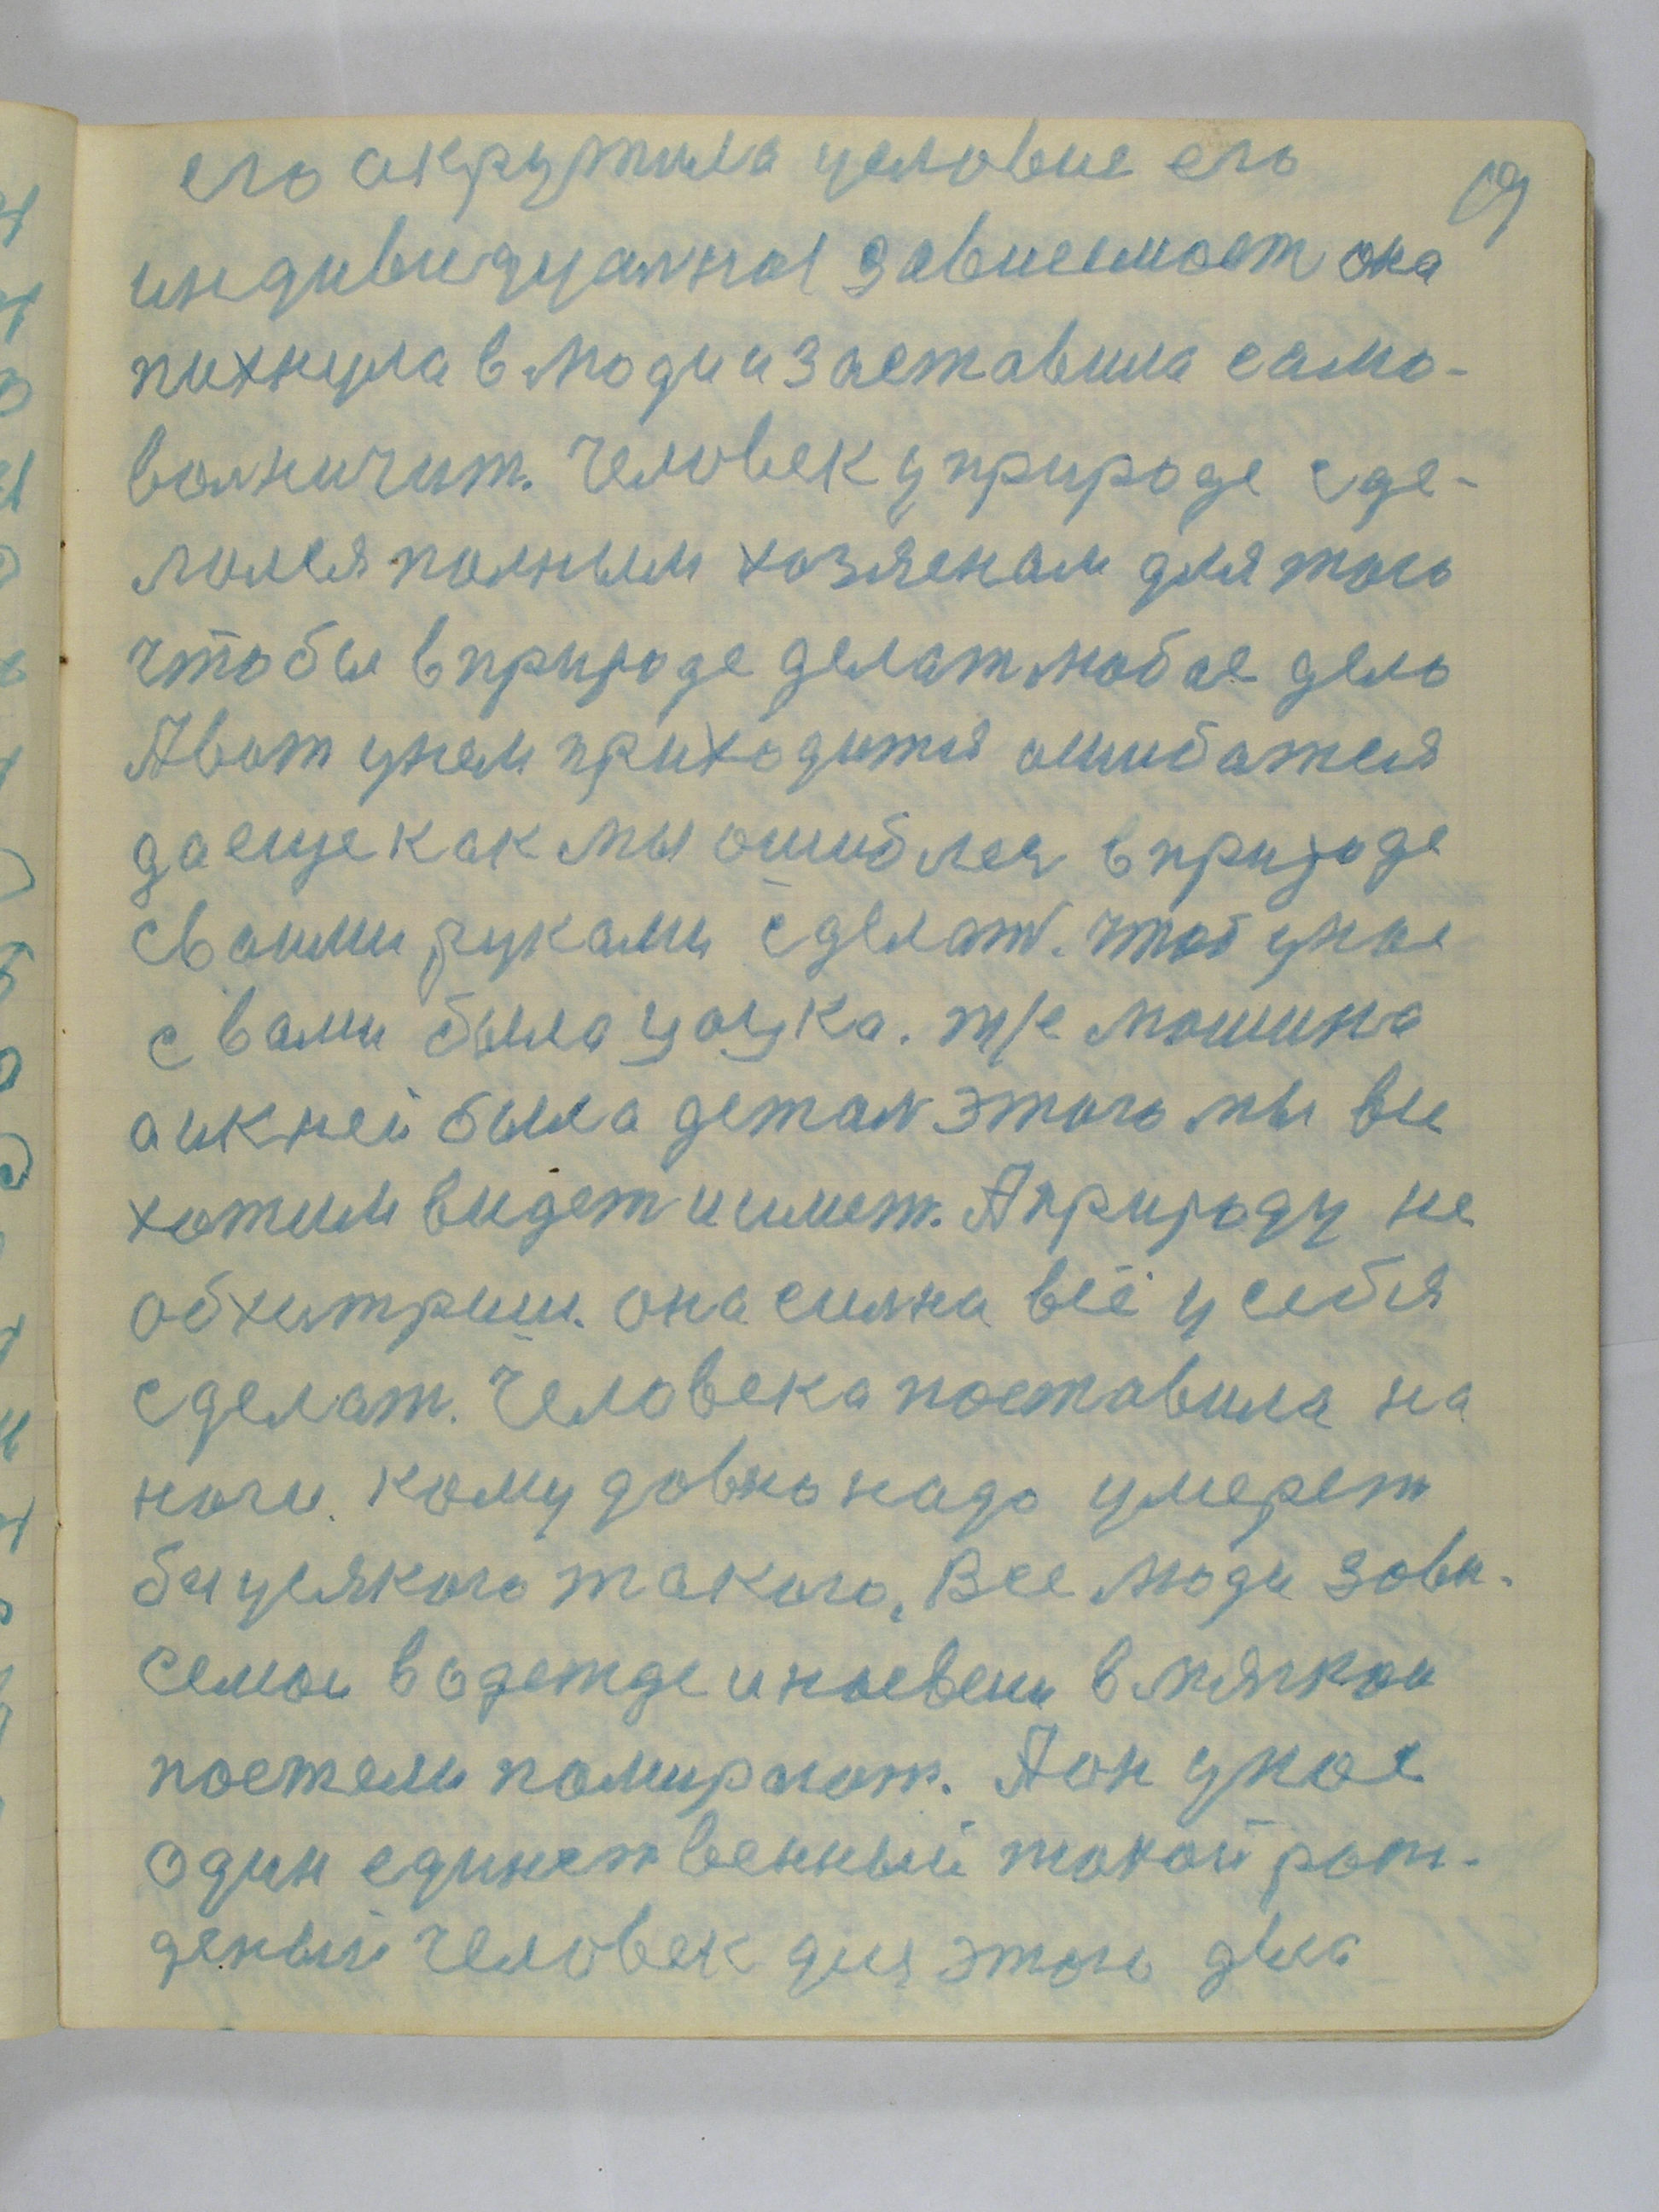 его акружила условие его
19
индивидуалнас зависемост она
пихнула в люди и заставила само-
волничит. Человек у природе сде-
лолся полным хозяенам для того
чтобы в природе делат любое дело
А вот у нем приходится ошибатся
да еще как мы ошиблся в природе
своими руками сделат. чтоб у нас
с вами была цацка. т/е машина
а и к ней была детал этого мы вси
хотим видет и имет. А природу не
обхитриш. она силна всё у себя
сделат. Человека поставила на
ноги. кому давно надо умерет
би усякого такого. Все люди зави-
семои в одежде и насевени в мягкои
постели помирают. А он у нас
один единственный такой рож-
деный человек для этого дела